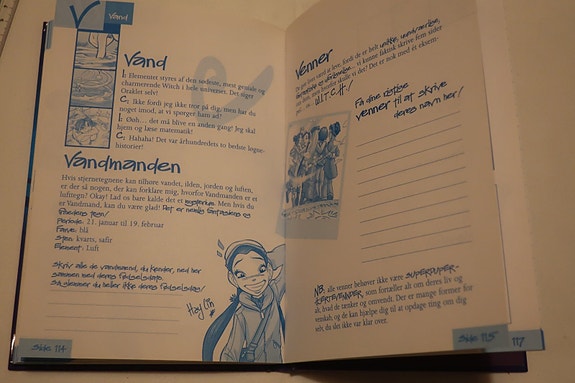 V
Vand
Vand
I: Elementet styres af den sødeste, mest geniale og
charmerende Witch i hele universet. Det siger
Oraklet selv!
C: Ikke fordi jeg ikke tror på dig, men har du
noget imod, at vi spørger ham ad?
I: Øøh... det må blive en anden gang! Jeg skal
hjem og læse matematik!
C: Hahaha! Det var århundredets to bedste løgne-
historier!
Vandmanden
Hvis stjernetegnene kan tilhøre vandet, ilden, jorden og luften,
er der så nogen, der kan forklare mig, hvorfor Vandmanden er et
lufttegn? Okay! Lad os bare kalde det et mysterium. Men hvis du
er Vandmand, kan du være glad! Det er nemlig fantasiens og
frihedens tegn!
Periode: 21. januar til 19. februar
Farve: blå
Sten: kvarts, safir
Element: Luft
Skriv alle de vandmænd, du kender, ned her
sammen med deres fødselsdato.
Så glemmer du heller ikke deres fødselsdag!
Hay Lin
Side 114
Venner
W.I.T.C.H.!
Få dine rigtige
venner til at skrive
deres navn her!
NB: alle venner behøver ikke være superduper-
hjertevenner, som fortæller alt om deres liv og
alt, hvad de tænker og omvendt. Der er mange former for
venskab, og de kan hjælpe dig til at opdage ting om dig
selv, du det ikke var klar over.
Side 115
117